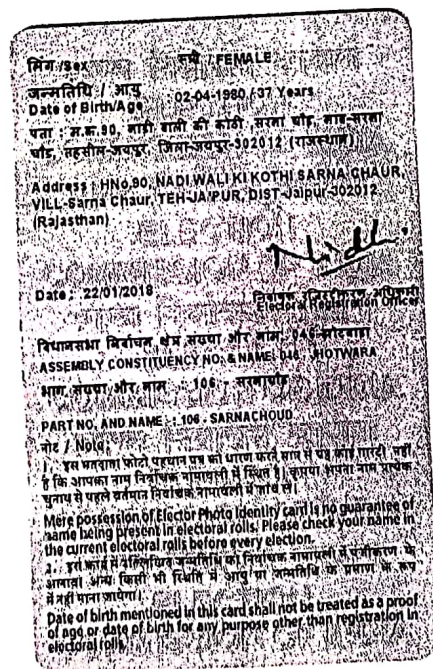 लिंग /Sex स्त्री / FEMALE
जन्मतिथि / आयु
Date of Birth/Age 02-04-1980 / 37 Years
पता : म.क.90, नाड़ी वाली की कोठी, सरना चौड़,
चौड़, तहसील-जयपुर, जिला-जयपुर-302012 (राजस्थान)
Address : HNo,90, NADI WALI KI KOTHI SARNA CHAUR,
VILL-Sarna Chaur, TEH-JAIPUR, DIST-Jaipur-302012
(Rajasthan)
Date : 22/01/2018
निर्वाचक रजिस्ट्रीकरण अधिकारी
Electoral Registration Officer
विधानसभा निर्वाचन क्षेत्र संख्या और नाम : 046-झोटवाड़ा
ASSEMBLY CONSTITUENCY NO. & NAME: 046 JHOTWARA
भाग संख्या और नाम : 106 - सरनाचौड़
PART NO. AND NAME : 106 - SARNACHOUD
नोट / Note :
1. इस मतदाता फोटो पहचान पत्र को धारण करने मात्र से यह कोई गारंटी नहीं
है कि आपका नाम निर्वाचक नामावली में स्थित है। कृपया अपना नाम प्रत्येक
चुनाव से पहले वर्तमान निर्वाचक नामावली में जांच लें।
Mere possession of Elector Photo Identity card is no guarantee of
name being present in electoral rolls. Please check your name in
the current electoral rolls before every election.
2. इस कार्ड में उल्लिखित जन्मतिथि को निर्वाचक नामावली में पंजीकरण के
अलावा अन्य किसी भी स्थिति में आयु या जन्मतिथि के प्रमाण के रूप
में नहीं माना जायेगा।
Date of birth mentioned in this card shall not be treated as a proof
of age or date of birth for any purpose other than registration in
electoral rolls.